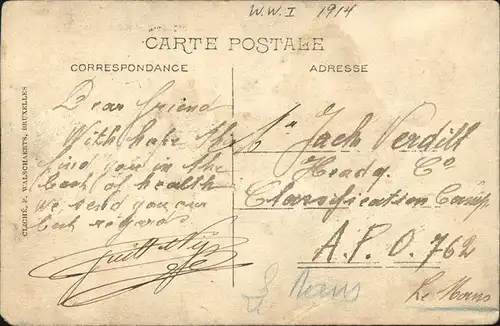 W.W.I 1914
CARTE POSTALE
CORRESPONDANCE
ADRESSE
Dear friend
With hope this
find you in the
best of health
we send you our
best regards.
Mr Jack Verdilt
Headq. Co
Classification Camp
A.P.O. 762
Le Mans
Le Mans
CLICHÉ P. WALSCHAERTS, BRUXELLES